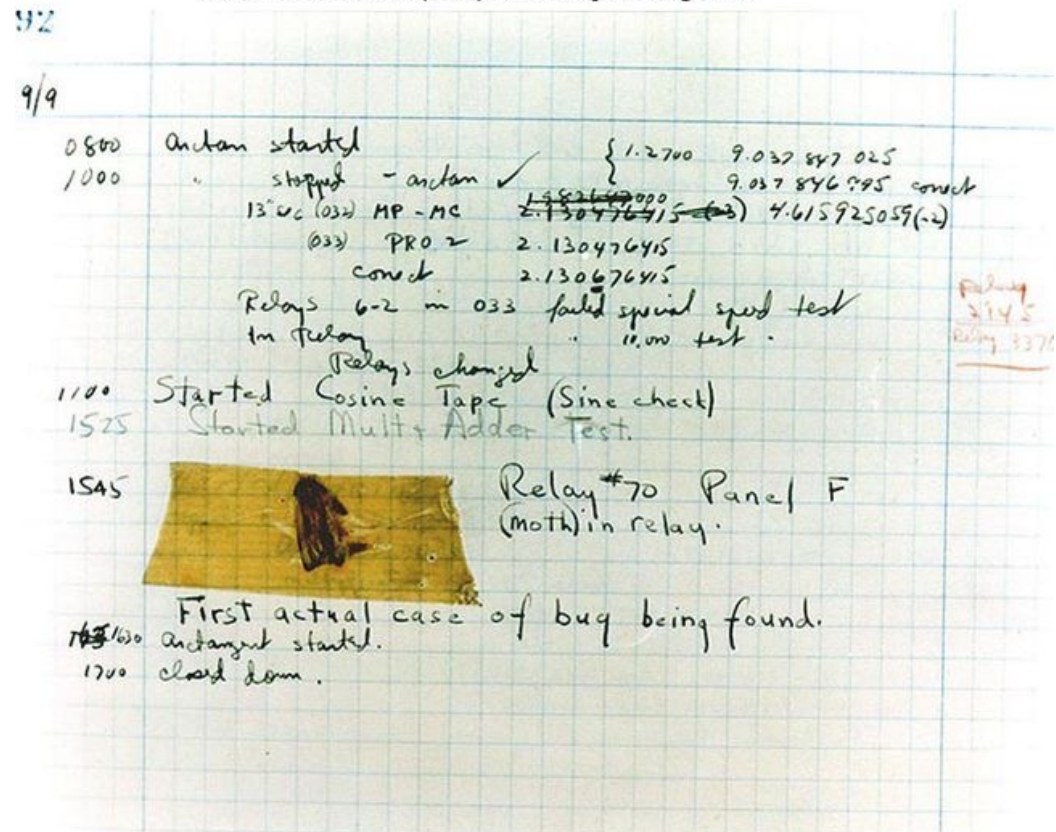 92
9/9
0800 arctan started { 1.2700 9.037 847 025
1000 " stopped - arctan ✓ 9.037 846 995 correct
13"uc (032) MP - MC 2.130476415 (-3) 4.615925059(-2)
(033) PRO 2 2.130476415
correct 2.130676415
Relays 6-2 in 033 failed special speed test
In Relay " 10,000 test .
Relays changed
Relay
2145
Relay 3370
1100 Started Cosine Tape (Sine check)
1525 Started Mult + Adder Test.
1545 Relay #70 Panel F
(moth) in relay.
First actual case of bug being found.
1630 arctangent started.
1700 closed down.